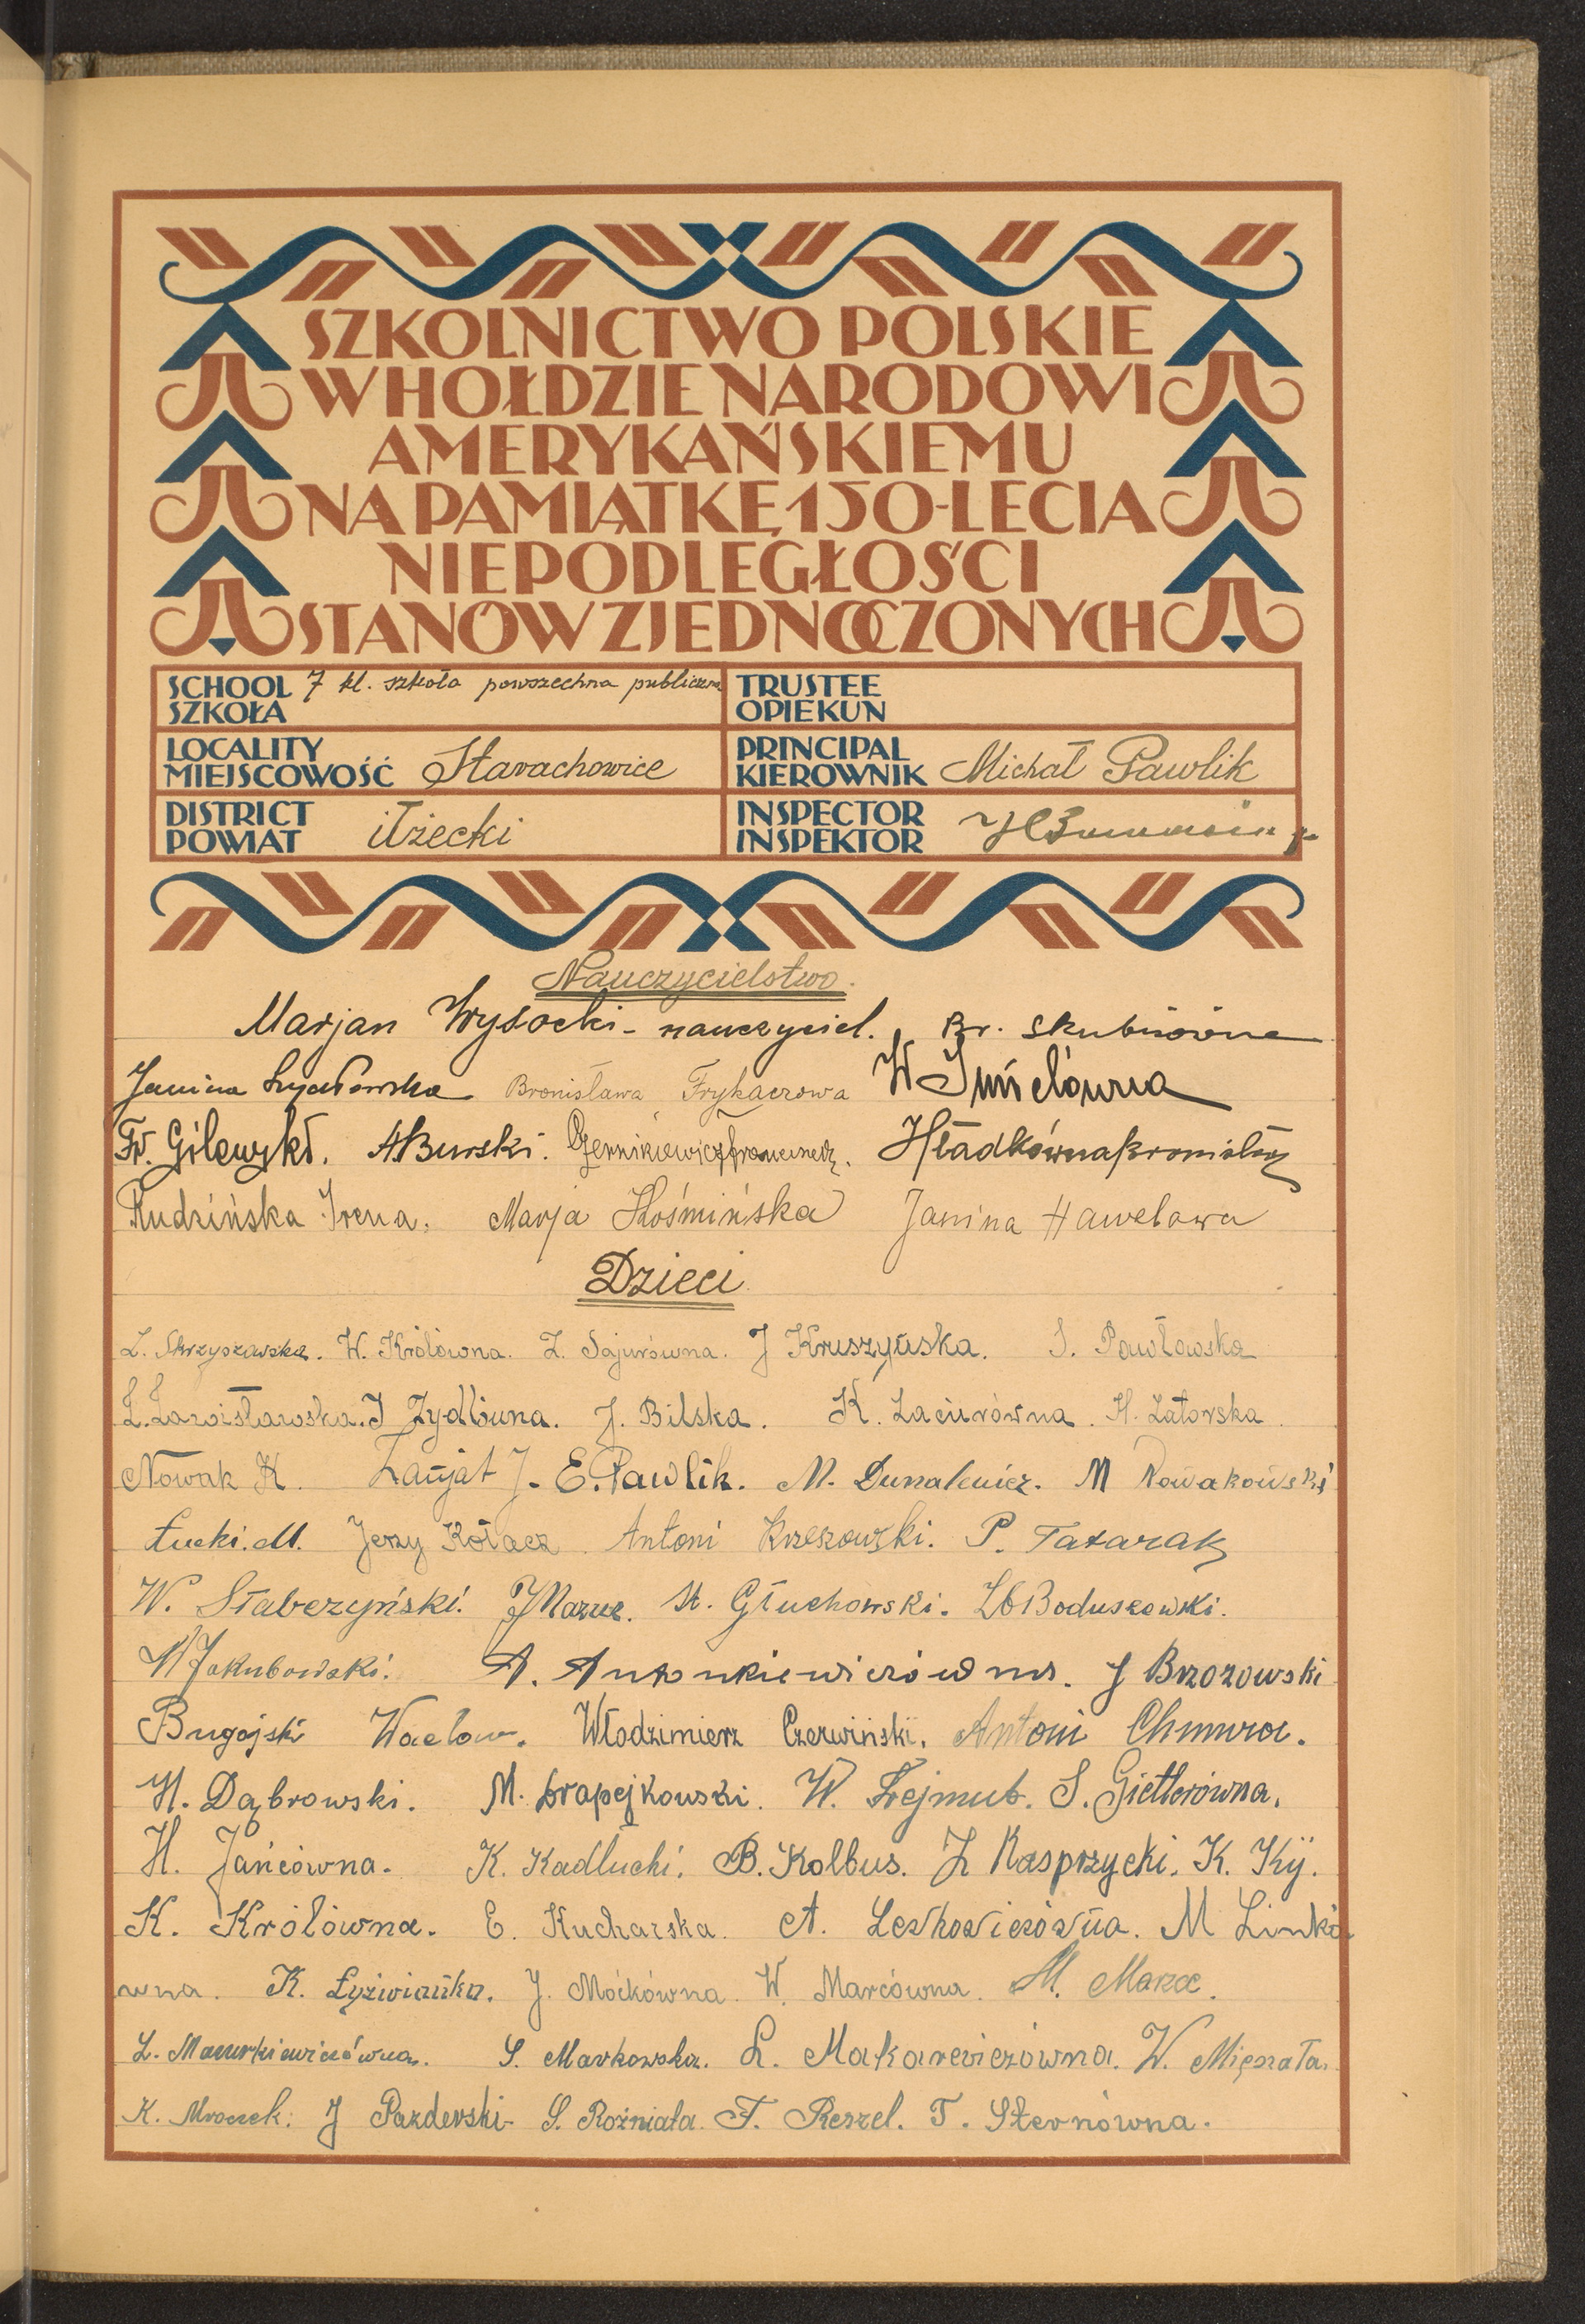 SZKOLNICTWO POLSKIE
W HOŁDZIE NARODOWI
AMERYKAŃSKIEMU
NA PAMIĄTKĘ 150-LECIA
NIEPODLEGŁOŚCI
STANÓW ZJEDNOCZONYCH
SCHOOL 7 kl. szkoła powszechna publiczna TRUSTEE
SZKOŁA OPIEKUN
LOCALITY PRINCIPAL
MIEJSCOWOŚĆ Starachowice KIEROWNIK Michał Pawlik
DISTRICT INSPECTOR
POWIAT iłżecki INSPEKTOR
Nauczycielstwo.
Marjan Wysocki - nauczyciel. Br. Skubisówna
Janina Bronisława Frykaczowa W
Fr. Gilewski. A. Burski. Czernikiewicz Franciszek. Hładkówna Bronisława
Rudzińska Irena. Marja Kośmińska Janina Hawelowa
Dzieci
Z. Skrzyszowska. W. Królówna. Z. Sajurówna. J Kruszyńska. S. Pawłowska
Z. Zawisławska. I Zydlówna. J. Bilska. K. Zaciurówna. H. Zatorska.
Nowak K. Zanjat J. E. Pawlik. M. Dunalewicz. M Nowakowski
Łucki. M. Jerzy Kołacz. Antoni Krzeszowski. P. Tatarak
W. Słabczyński. J Mazur. St. Głuchowski. Zb Boduszowski.
W Jakubowski. A. Antonkiewiczówna. J Brzozowski
Bugajski Wacław. Włodzimierz Czerwiński. Antoni Chmura.
H. Dąbrowski. M. Drapejkowski. W. Frejmut. S. Gietlerówna.
H. Jańcówna. K. Kadłucki. B. Kolbus. Z Kasprzycki. K. Kij.
K. Królówna. E. Kucharska. A. Leskowiczówna. M Linkó
wna. K. Łyżwianka. J. Moćkówna. W. Marcówna. M. Marzec.
L. Mazurkiewiczówna. S. Markowska. L. Makarewiczówna. W. Mięzała.
K. Mroczek. J Pazderski. S. Roźniata. F. Reszel. T. Sternówna.